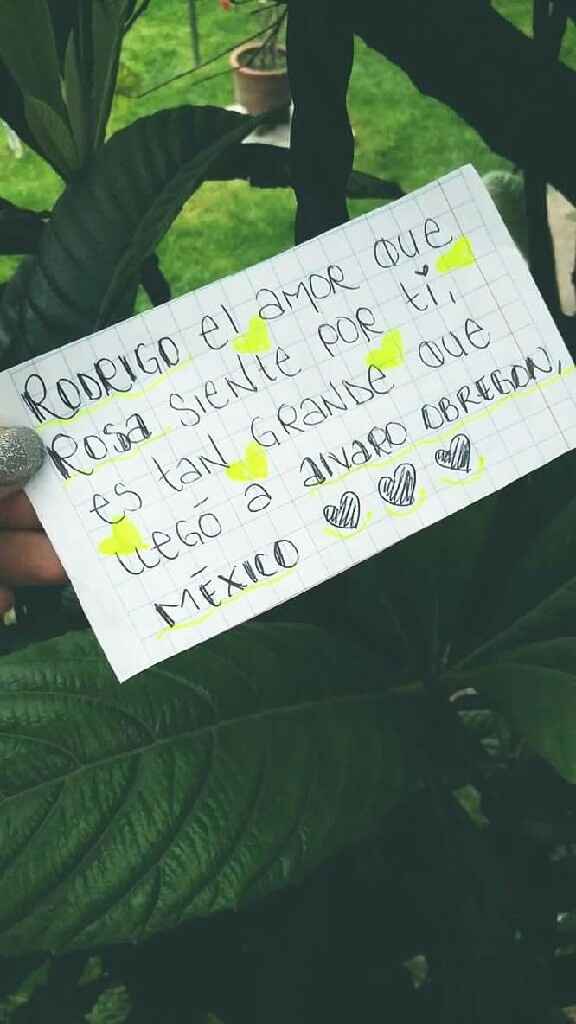 RODRIGO el amor que
ROSA siente por ti,
es tan grande que
llegó a alvaro OBREGON,
MÉXICO